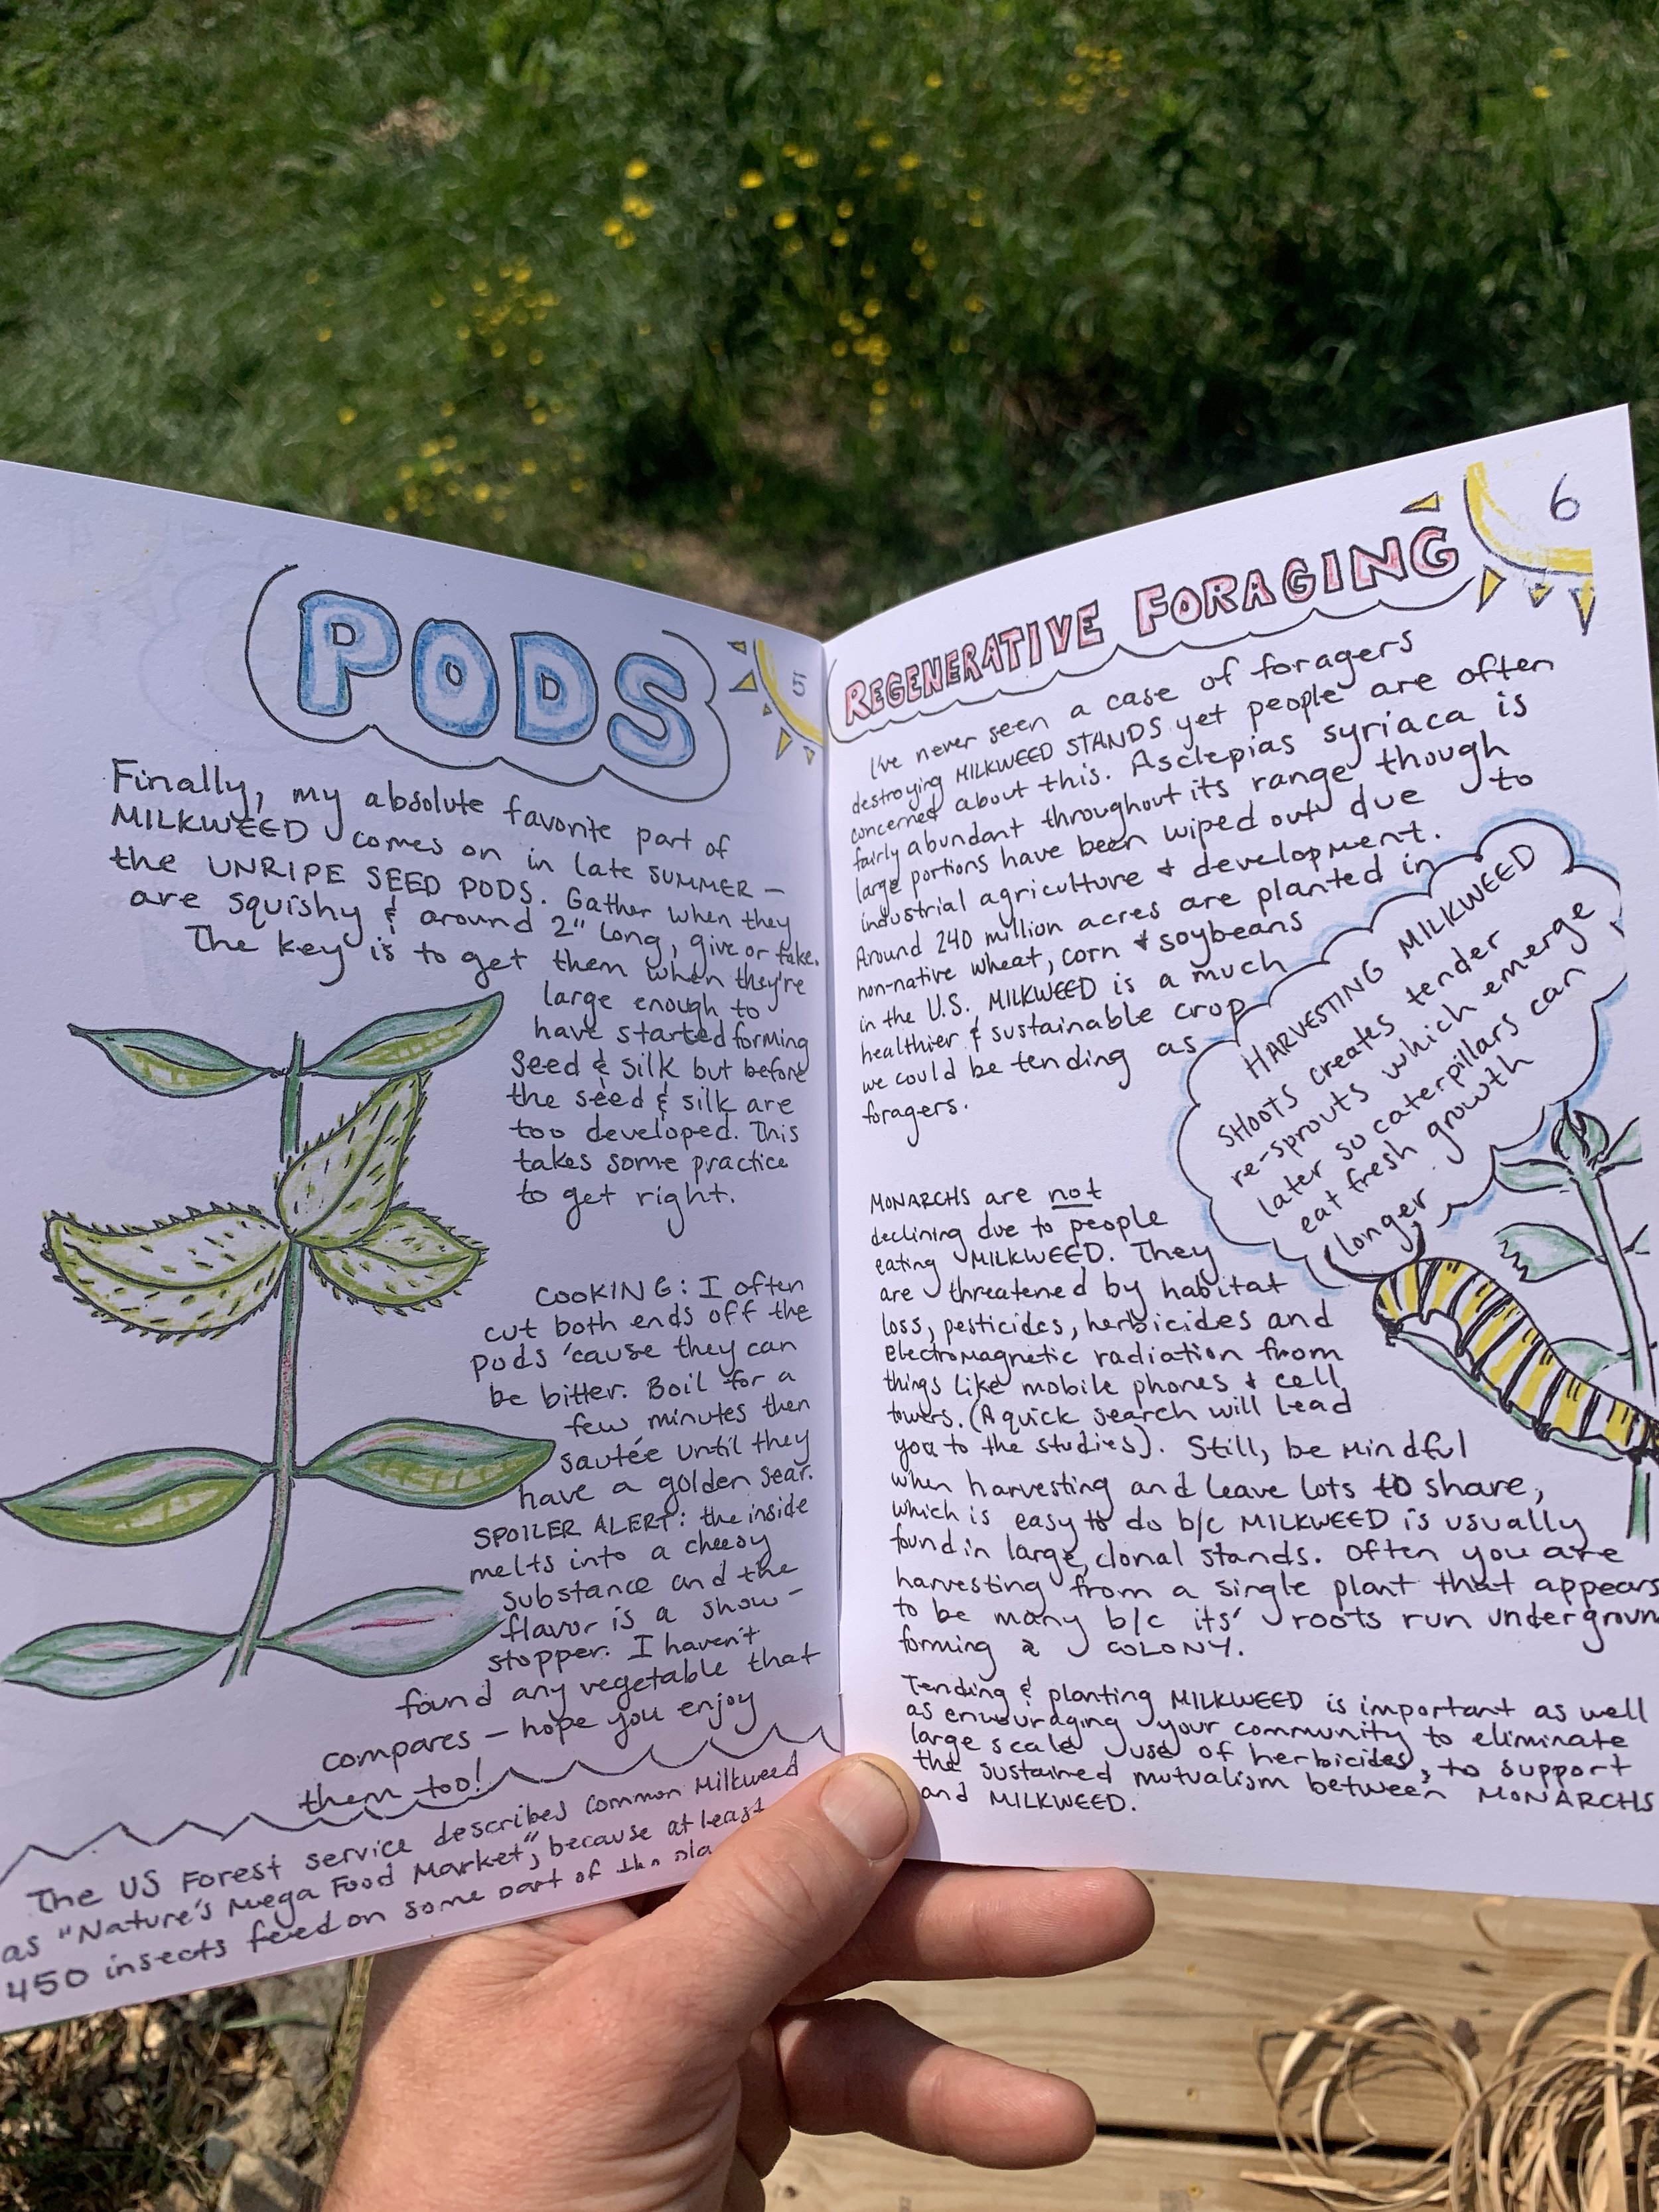 PODS
5
Finally, my absolute favorite part of
MILKWEED comes on in late SUMMER —
the UNRIPE SEED PODS. Gather when they
are squishy & around 2" long, give or take.
The key is to get them when they're
large enough to
have started forming
seed & silk but before
the seed & silk are
too developed. This
takes some practice
to get right.
COOKING: I often
cut both ends off the
pods 'cause they can
be bitter. Boil for a
few minutes then
sautée until they
have a golden sear.
SPOILER ALERT: the inside
melts into a cheesy
substance and the
flavor is a show-
stopper. I haven't
found any vegetable that
compares — hope you enjoy
them too!
The US Forest service describes Common Milkweed
as "Nature's Mega Food Market", because at least
450 insects feed on some part of the
6
REGENERATIVE FORAGING
I've never seen a case of foragers
destroying MILKWEED STANDS yet people are often
concerned about this. Asclepias syriaca is
fairly abundant throughout its range though
large portions have been wiped out due to
industrial agriculture & development.
Around 240 million acres are planted in
non-native wheat, corn & soybeans
in the U.S. MILKWEED is a much
healthier & sustainable crop
we could be tending as
foragers.
HARVESTING MILKWEED
SHOOTS creates tender
re-sprouts which emerge
later so caterpillars can
eat fresh growth
longer
MONARCHS are not
declining due to people
eating MILKWEED. They
are threatened by habitat
loss, pesticides, herbicides and
Electromagnetic radiation from
things like mobile phones & cell
towers. (A quick search will lead
you to the studies). Still, be mindful
when harvesting and leave lots to share,
which is easy to do b/c MILKWEED is usually
found in large, clonal stands. Often you are
harvesting from a single plant that appears
to be many b/c its' roots run undergroun
forming a COLONY.
Tending & planting MILKWEED is important as well
as encouraging your community to eliminate
large scale use of herbicides, to support
the sustained mutualism between MONARCHS
and MILKWEED.